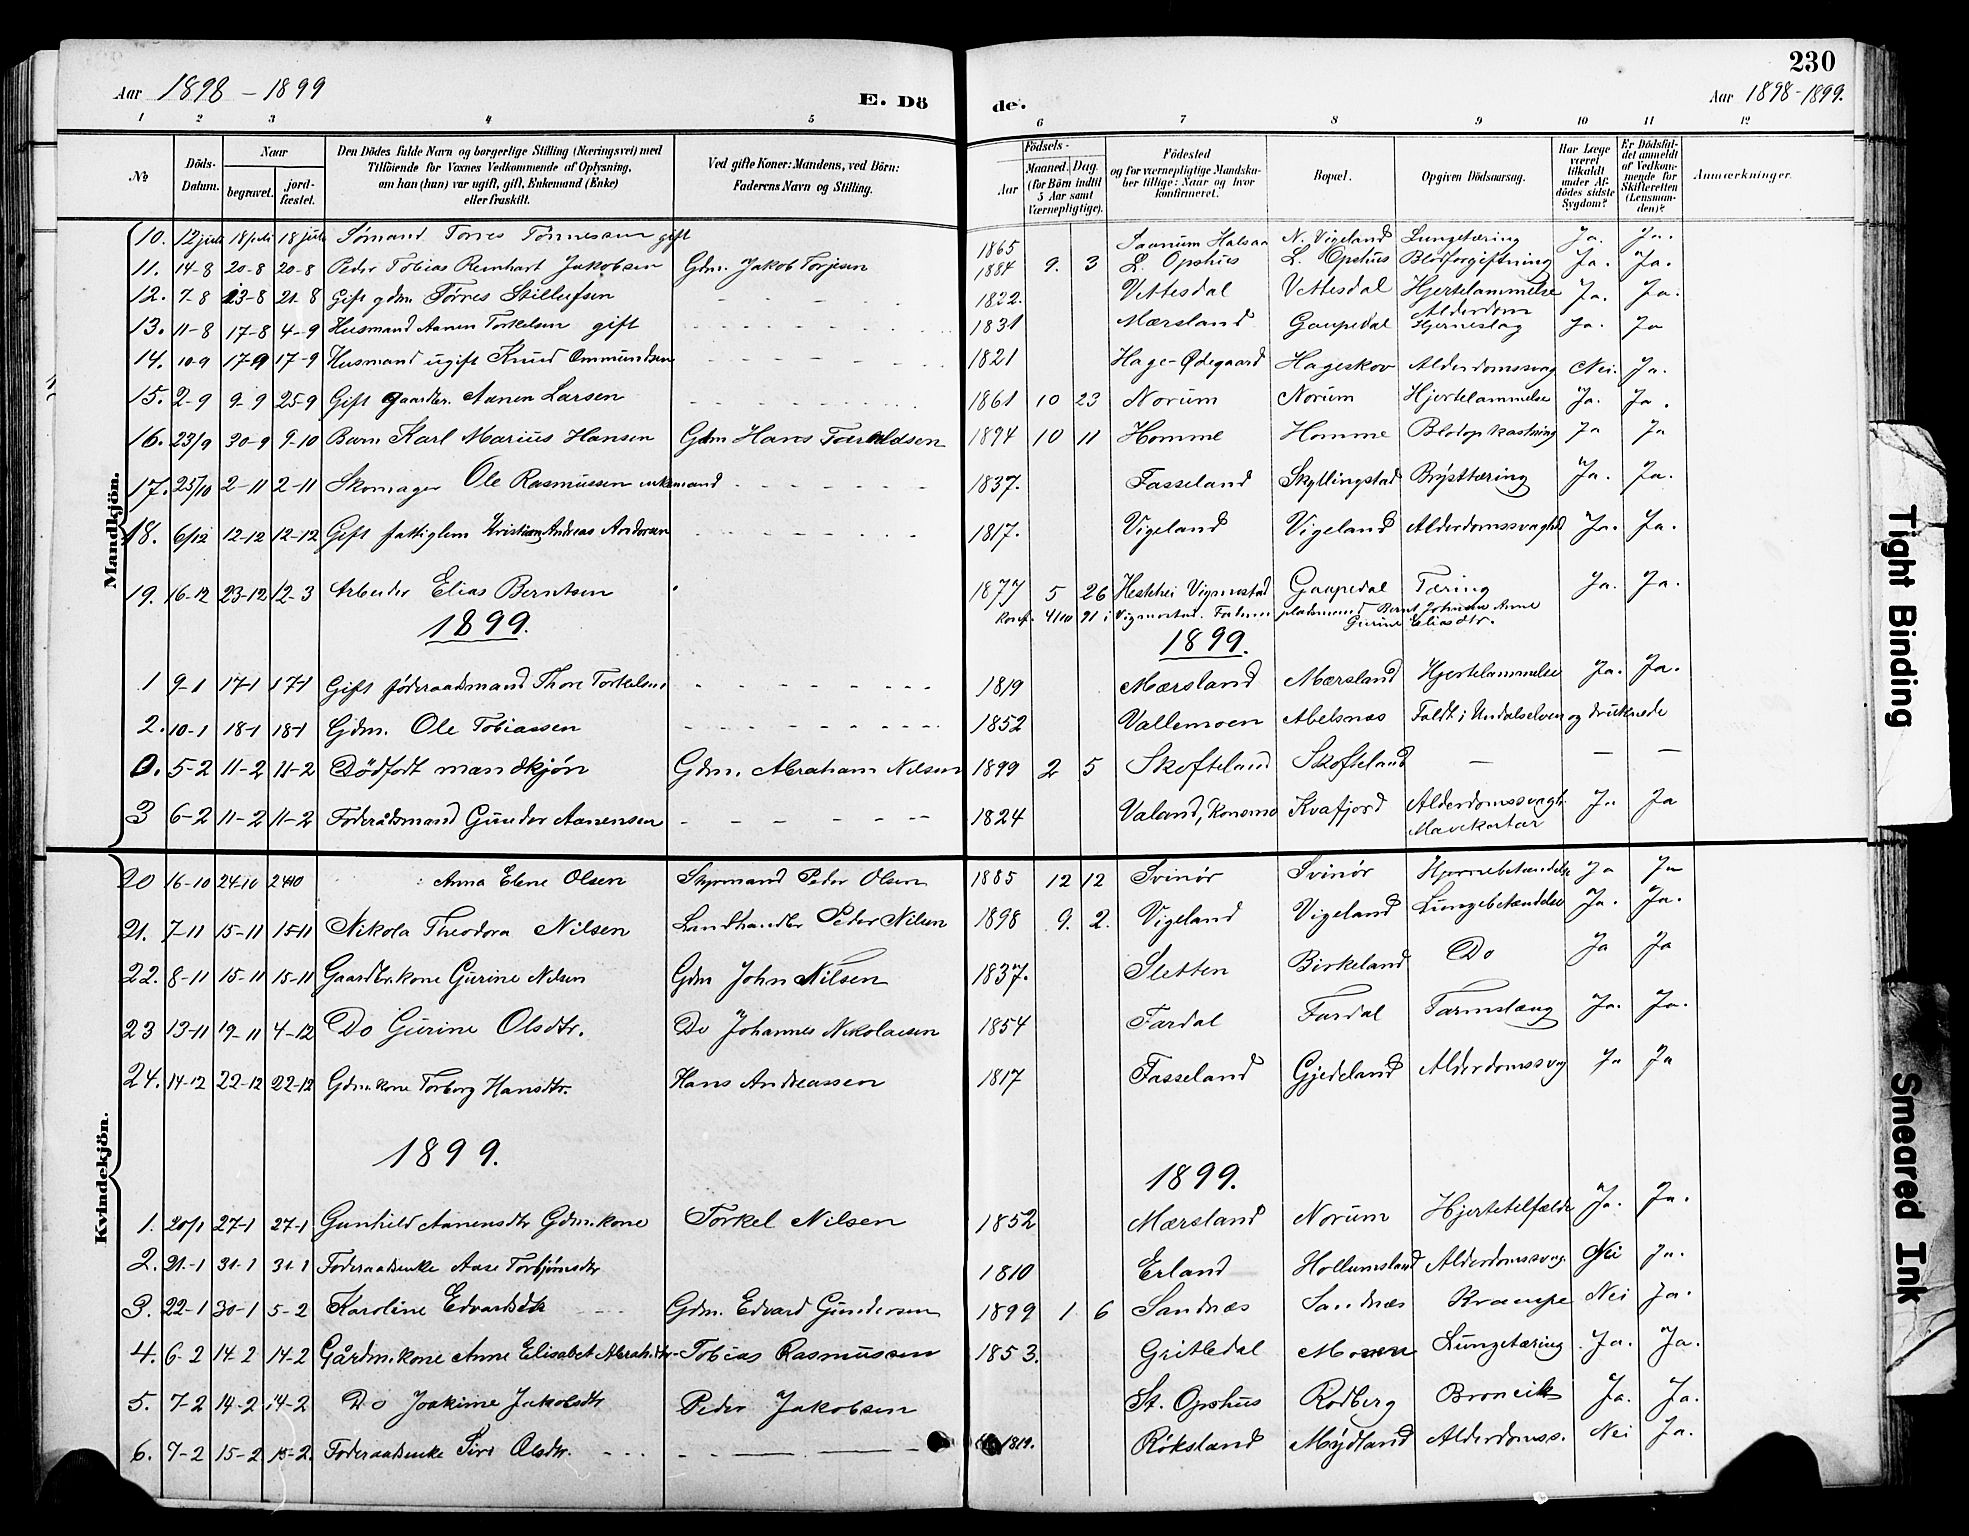 230
Aar 1898-1899
E. Dö
de.
Aar 1898-1899.
1 2 3 4 5 6 7 8 9 10 11 12
No
Döds-Datum.
Naar
begravet.
jordfæstet.
Den Dödes fulde Navn og borgerlige Stilling (Næringsvei) med
Tilföiende for Voxnes Vedkommende af Oplysning,
om han (hun) var ugift, gift, Enkemand (Enke)
eller fraskilt.
Ved gifte Koner: Mandens, ved Börn:
Faderens Navn og Stilling.
Födsels-
Aar
Maaned. Dag.
(for Börn indtil
5 Aar samt
Værnepligtige).
Födested
og for værnepligtige Mandskaber tillige: Naar og hvor
konfirmeret.
Bopæl.
Opgiven Dödsaarsag.
Har Læge været tilkaldt under Afdödes sidste Sygdom?
Er Dödsfaldet anmeldt af Vedkommende for Skifteretten (Lensmanden)?
Anmærkninger.
Mandkjön.
10. 12 juli 18 juli 18 juli Sømand Torres Tønnessen gift 1865 Saanum Halsaa N. Vigeland Lungetæring Ja. Ja.
11. 14-8 20-8 20-8 Peder Tobias Reinhart Jakobsen Gdm. Jakob Torjesen 1884 9. 3 L. Opshus L. Opshus Blodforgiftning Ja. Ja.
12. 7-8 13-8 21-8 Gift gdm. Tørres Stillufsen 1822. Vettesdal Vettesdal Hjertelammelse Ja. Ja.
13. 11-8 17-8 4-9 Husmand Aanen Torkelsen gift 1831 Mærsland Gaupedal Alderdom Hjerneslag Ja. Ja
14. 10-9 17-9 17-9 Husmand ugift Knud Ommundsen 1821 Hage-Ødegaard Hageskov Alderdomssvag Nei. Ja.
15. 2-9 9-9 25-9 Gift gaardbr. Aanen Larsen 1861 10 23 Norum Norum Hjertelammelse Ja. Ja.
16. 23/9 30-9 9-10 Barn Karl Marius Hansen Gdm Hans Torkildsen 1894 10 11 Homme Homme Blodopkastning Ja Ja
17. 25/10 2-11 2-11 Skomager Ole Rasmussen enkemand 1837. Fasseland Skyllingstad Brysttæring Ja. Ja.
18. 6/12 12-12 12-12 Gift fattiglem Kristian Andreas Andersen 1817. Vigeland Vigeland Alderdomssvaghed Ja. Ja.
19. 16-12 23-12 12-3 Arbeider Elias Berntsen 1877 5 26 Hestehei Vigmostad Gaupedal Tæring Ja. Ja.
Konf. 4/10 91 i Vigmostad. pladsmand Bernt Johnsen Anne
Gurine Eliasdtr.
1899. 1899.
1 9-1 17-1 17-1 Gift føderaadsmand Thore Torkelsen 1819 Mærsland Mærsland Hjertelammelse Ja. Ja.
2. 10-1 18-1 18-1 Gdm. Ole Tobiassen 1852 Vallemoen Abelsnæs Faldt i Undalselven og druknede
0. 5-2 11-2 11-2 Dödfödt mandkjön Gdm. Abraham Nilsen 1899 2 5 Skofteland Skofteland — — —
3 6-2 11-2 11-2 Foderådsmand Gunder Aanensen 1824 Valand, Konsmo Kvafjord Alderdomssvagh. Mavekatar Ja Ja
Kvindekjön.
20 16-10 24-10 24-10 Anna Elene Olsen Styrmand Peder Olsen 1885 12 12 Svinør Svinør Hjernebetændelse Ja Ja
21. 7-11 15-11 15-11 Nikola Theodora Nilsen Landhandler Peder Nilsen 1898 9. 2. Vigeland Vigeland Lungebetændelse Ja. Ja.
22. 8-11 15-11 15-11 Gaardbr.kone Gurine Nilsen Gdm John Nilsen 1837. Sletten Birkeland Do Ja Ja
23 13-11 19-11 4-12 Do Gurine Olsdtr. Do Johannes Nikolaisen 1854 Fardal Fardal Tarmslæng Ja. Ja.
24. 14-12 22-12 22-12 Gdm.kone Torborg Hansdtr. Hans Andreassen 1817 Fasseland Gjedeland Alderdomssvag Ja Ja
1899. 1899.
1. 20/1 27-1 27-1 Gunhild Aanensdtr Gdm.kone Torkel Nilsen 1852 Mærsland Norum Hjertetilfælde Ja. Ja.
2. 21-1 31-1 31-1 Foderaadsenke Aase Torbjørnsdtr 1810 Erland Hollumsland Alderdomssvag. Nei Ja.
3. 22-1 30-1 5-2 Karoline Edvardsdtr Gdm. Edvard Gundersen 1899 1. 6 Sandnæs Sandnæs Krampe Nei Ja.
4. 6-2 14-2 14-2 Gårdm.kone Anne Elisabet Abrah.dtr. Tobias Rasmussen 1853. Gritledal Moen Lungetæring Ja. Ja.
5. 7-2 14-2 14-2 Do Joakime Jakobsdtr Peder Jakobsen St. Opshus Rodberg Broncik Ja. Ja.
6. 7-2 15-2 15-2. Foderaadsenke Siri Olsdtr. 1819. Röksland Mydland Alderdomss. Nei Ja.
Tight Binding
Smeared Ink